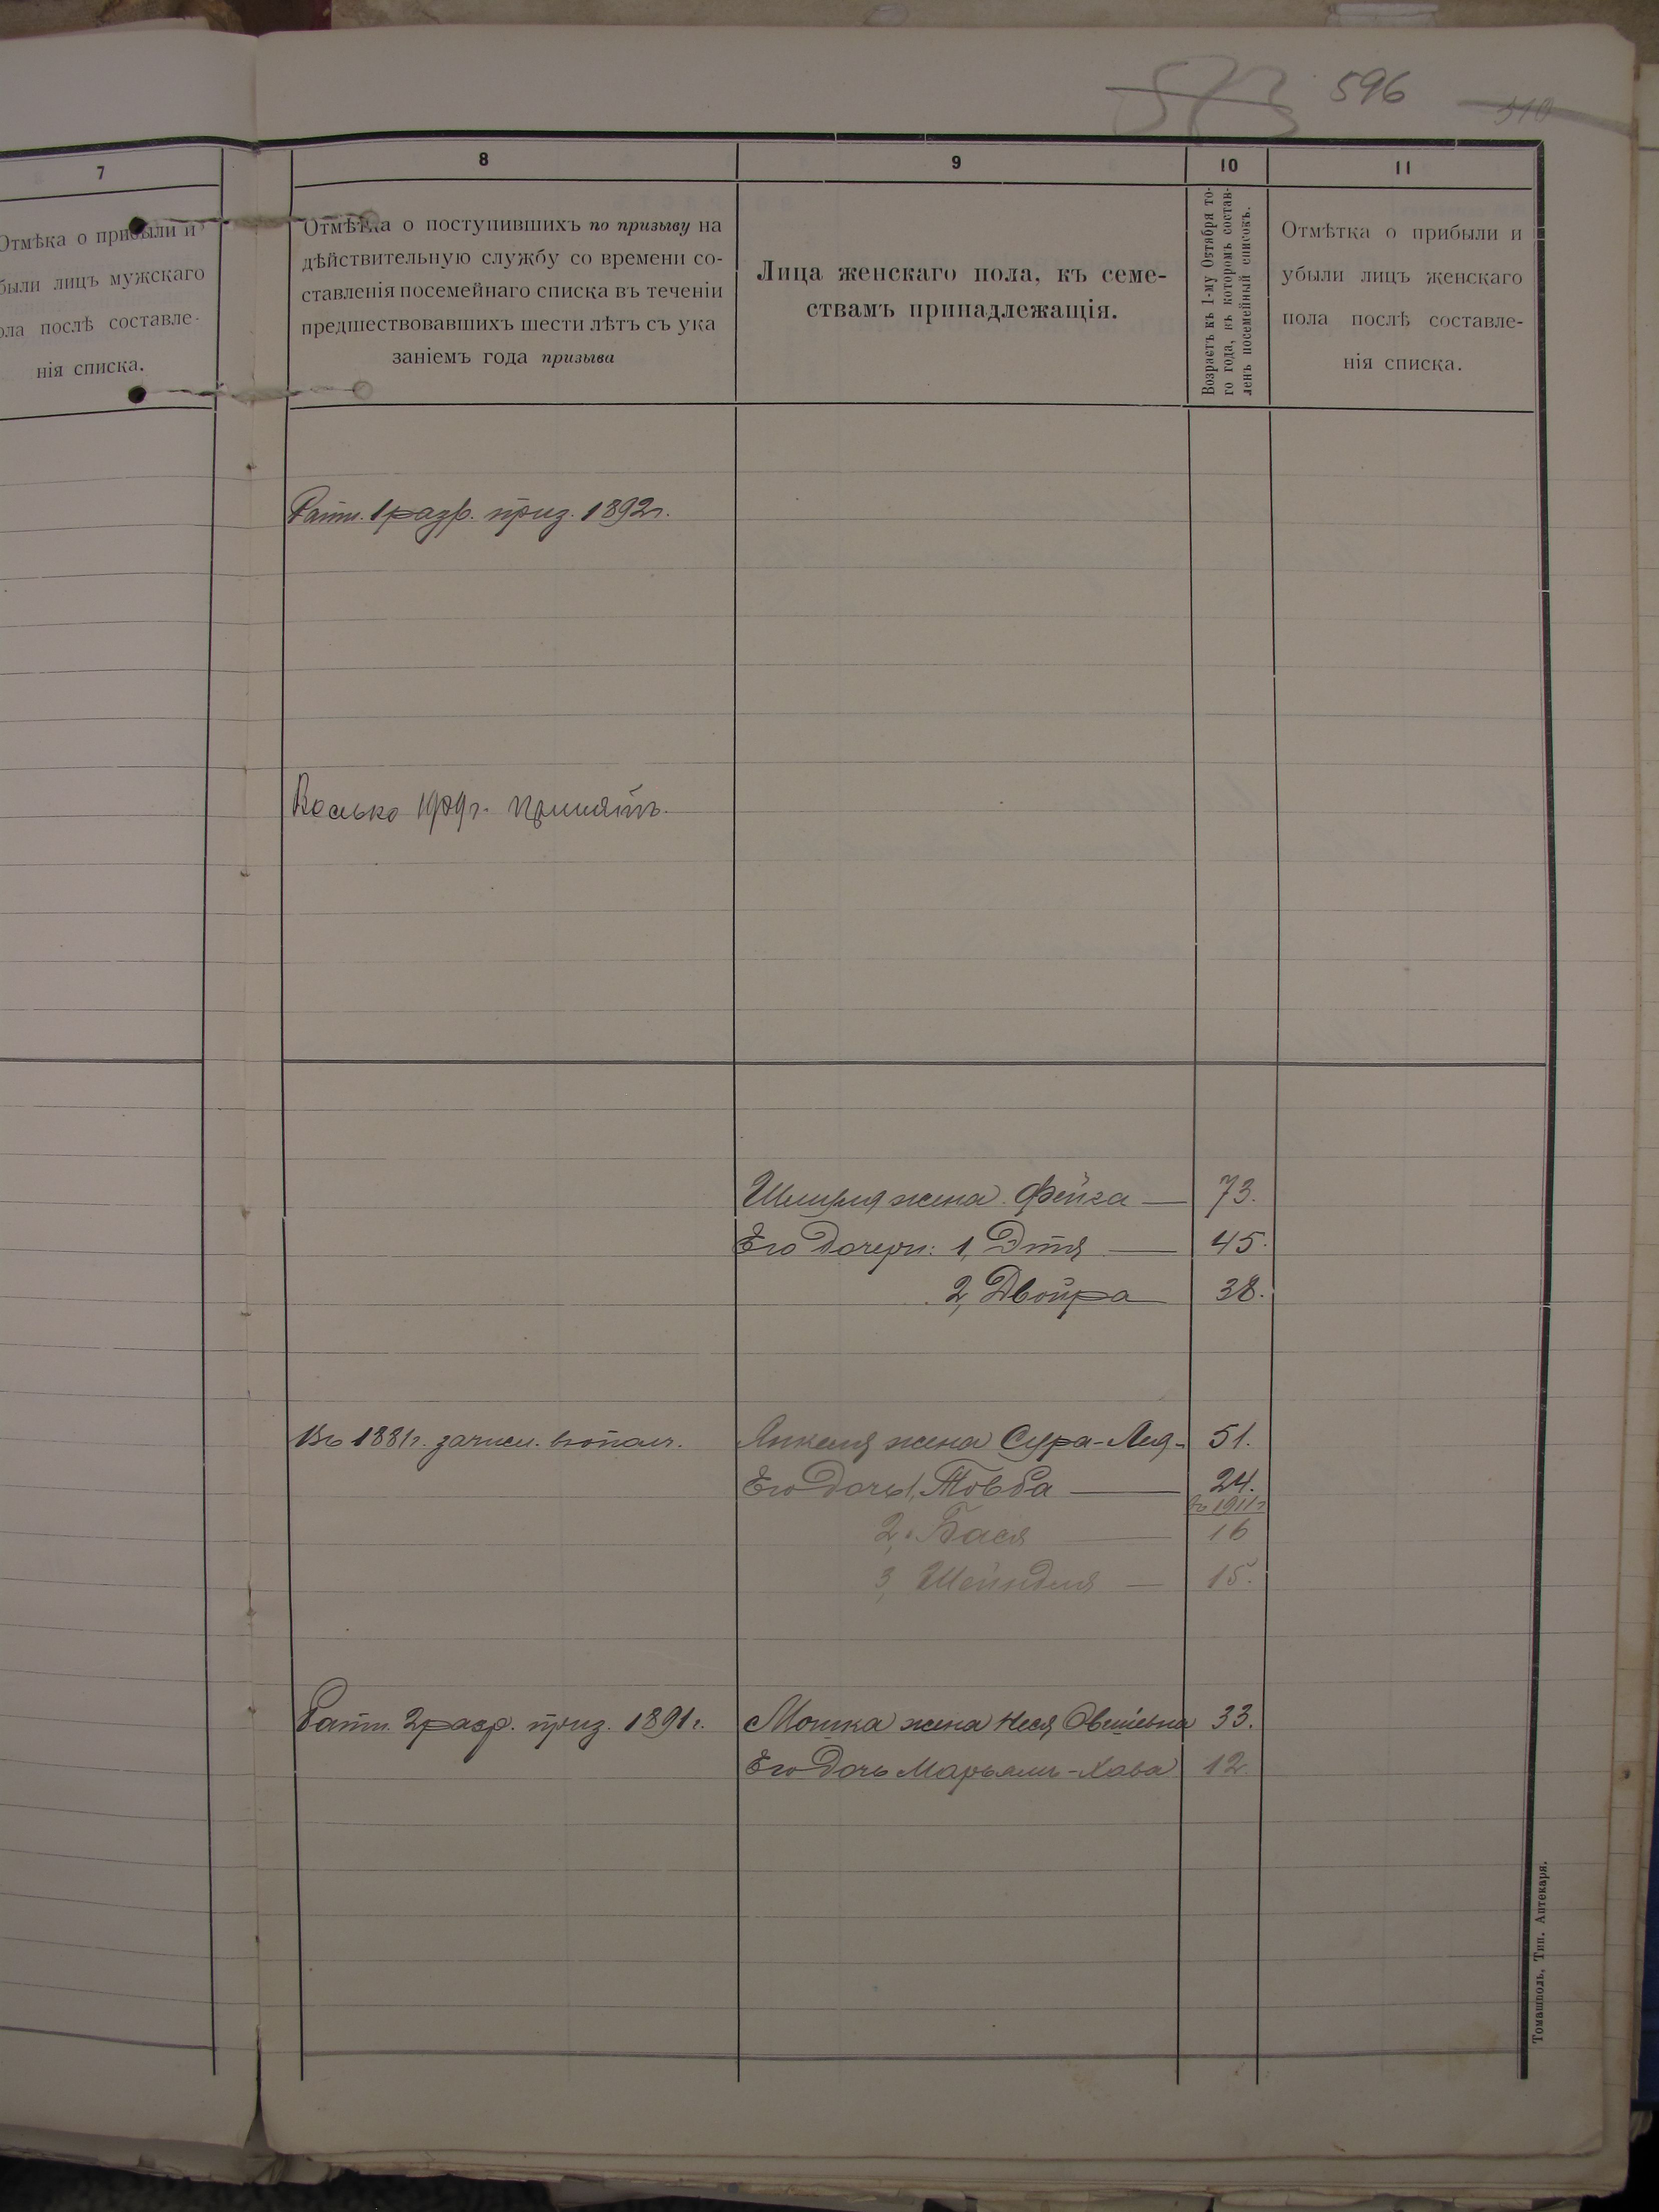 573 596 510
7
Отмѣка о прибыли и
были лицъ мужскаго
ола послѣ составле-
нія списка.
8
Отмѣтка о поступившихъ по призыву на
дѣйствительную службу со времени со-
ставленія посемейнаго списка въ теченіи
предшествовавшихъ шести лѣтъ съ ука
заніемъ года призыва
9
Лица женскаго пола, къ семе-
ствамъ принадлежащія.
10
Возрастъ къ 1-му Октября то-
го года, въ которомъ состав-
ленъ посемейный списокъ.
11
Отмѣтка о прибыли и
убыли лицъ женскаго
пола послѣ составле-
нія списка.
Ратн. 1 разр. приз. 1892 г.
1909 г. принятъ.
жена Фейга — 73.
Его дочери: 1, Этя — 45.
2, Двойра — 38.
Въ 1881 г. зачисл. в ополч.
Янкеля жена Сура-Лея - 51.
Его дочь 1, Товба — 24.
въ 1911 г
2, Бася — 16
3, Шейндля — 15.
Ратн. 2 разр. приз. 1891 г.
Мошка жена Неся Овшіевна 33.
Его дочь Марьямъ-Хава 12.
Томашполь, Тип. Аптекаря.